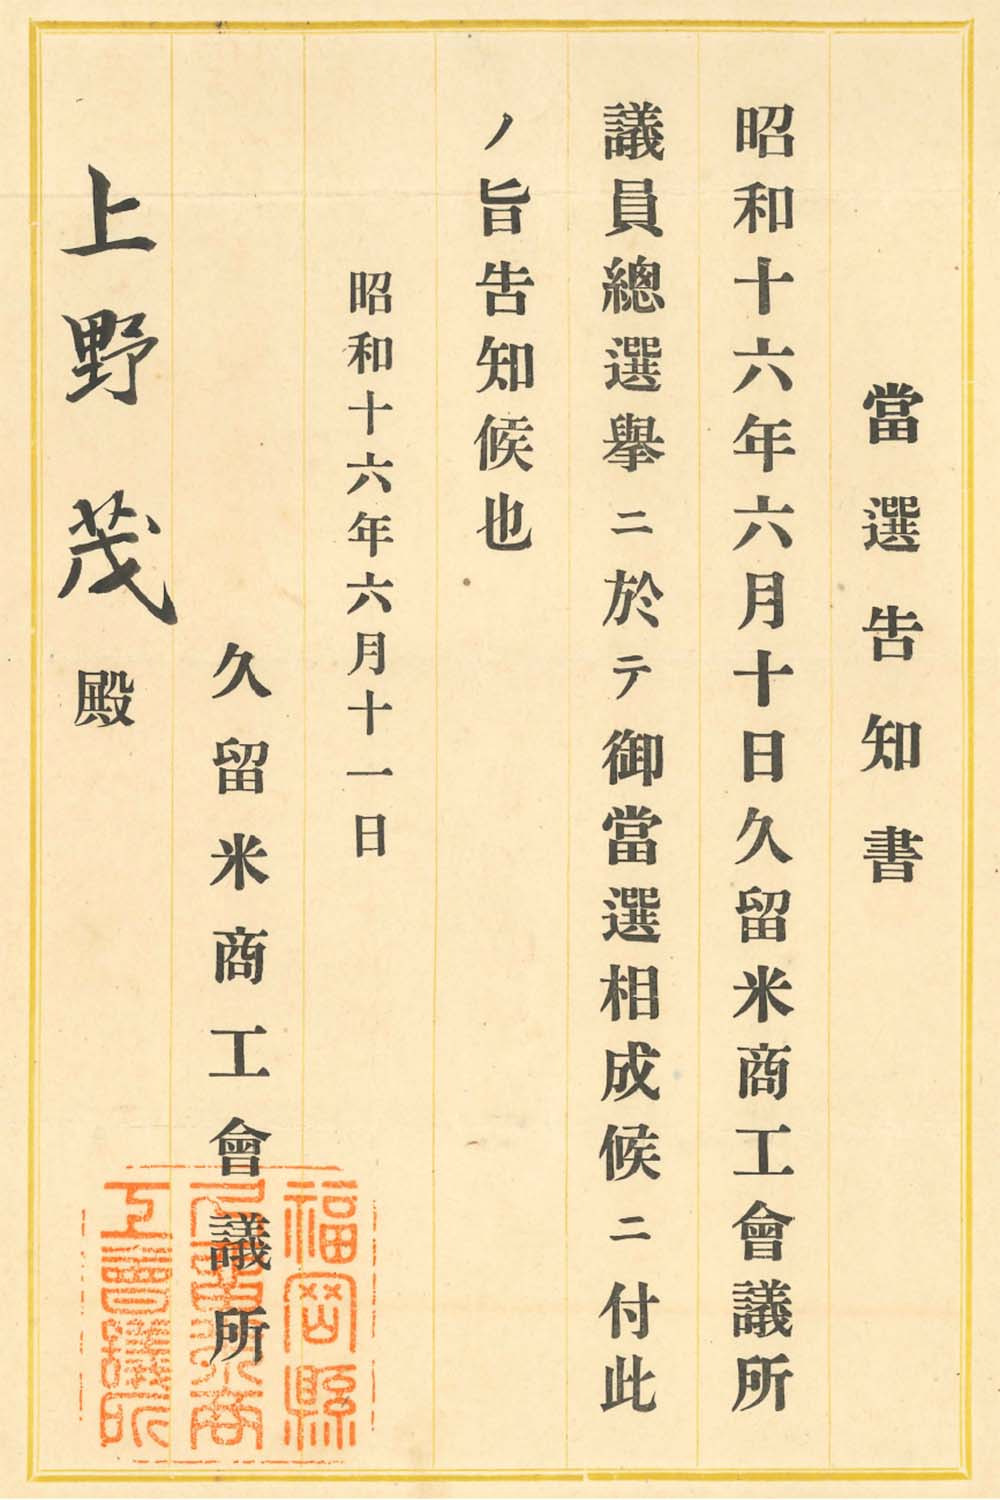 當選告知書
昭和十六年六月十日久留米商工會議所
議員總選擧ニ於テ御當選相成候ニ付此
ノ旨告知候也
昭和十六年六月十一日
久留米商工會議所
上野茂殿
福岡縣
久留米商
工會議所